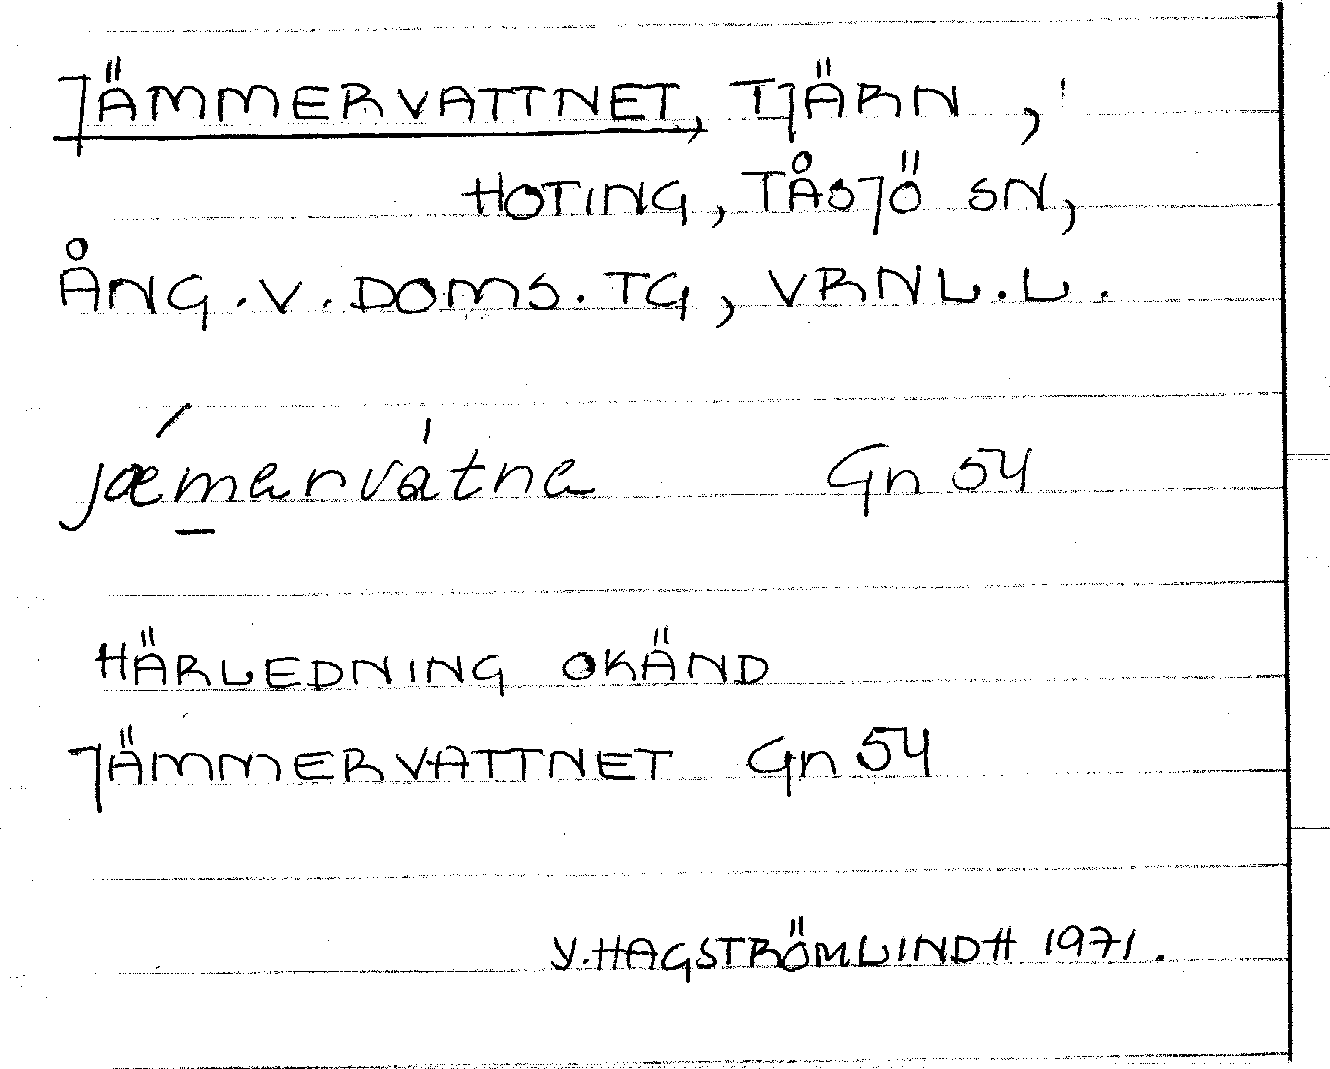 JÄMMERVATTNET, TJÄRN,
HOTING, TÅSJÖ SN,
ÅNG.V.DOMS.TG, VRNL.L.
jǽmervátne Gn 54
HÄRLEDNING OKÄND
JÄMMERVATTNET Gn 54
Y.HAGSTRÖMLINDH 1971.